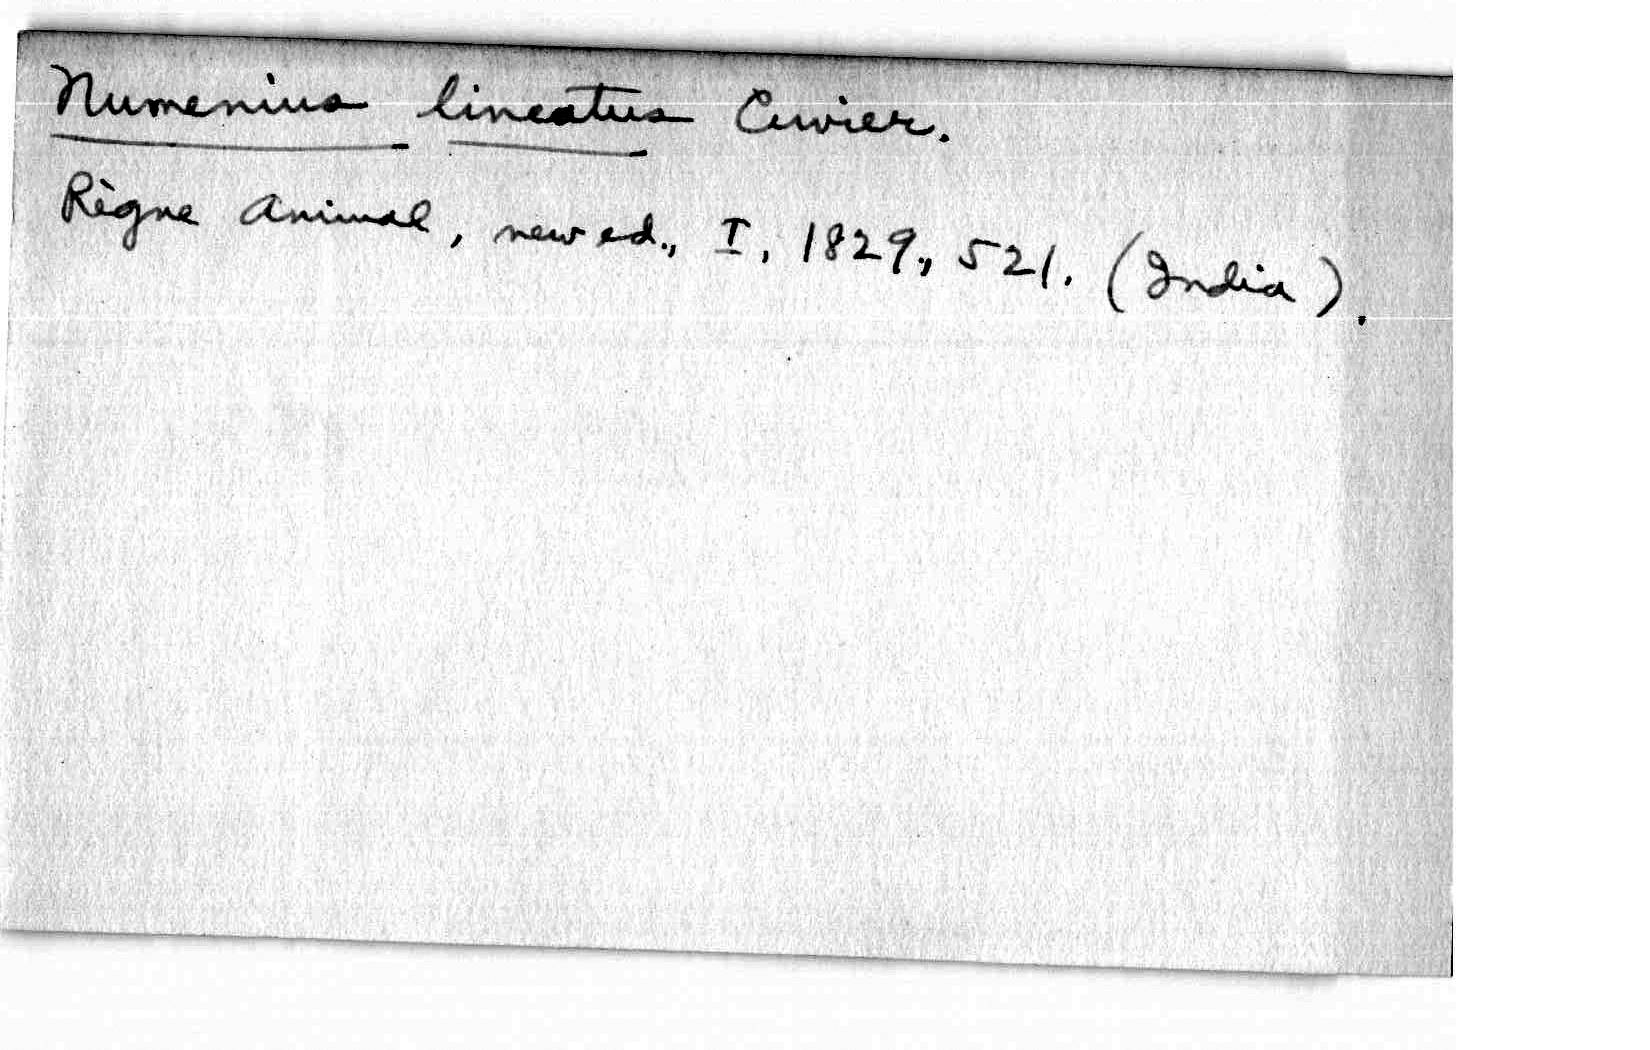 Numenius lineatus Cuvier.
Règne Animal, new ed., I, 1829, 521. (India).